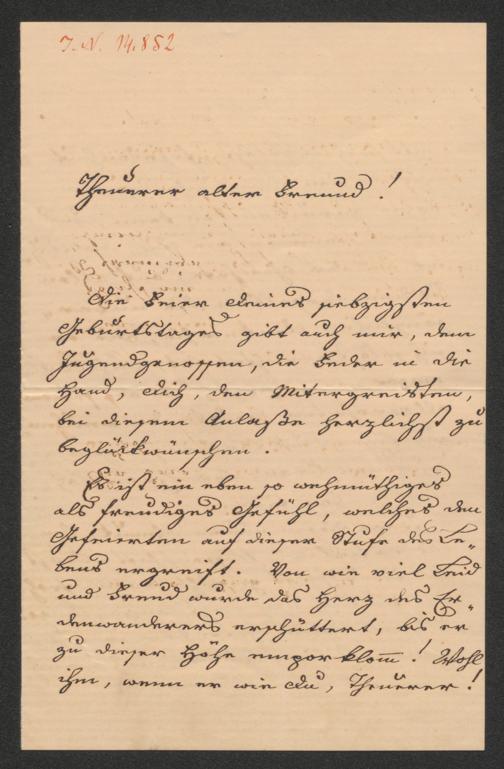 I. N. 14.852
Theuerer alter Freund!
Die Feier Deines siebzigsten
Geburtstages gibt auch mir, dem
Jugendgenossen, die Feder in die
Hand, Dich, den Mitergreisten,
bei diesem Anlaße herzlichst zu
beglückwünschen.
Es ist ein eben so wehmüthiges
als freudiges Gefühl, welches den
Gefeierten auf dieser Stufe des Le„
bens ergreift. Von wie viel Leid
und Freud wurde das Herz des Er„
denwanderers erschüttert, bis er
zu dieser Höhe emporklom̅! Wohl
ihm, wenn er wie Du, Theuerer!